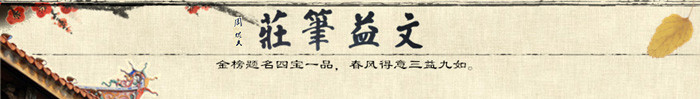 文益筆莊
金榜题名四宝一品，春风得意三益九如。